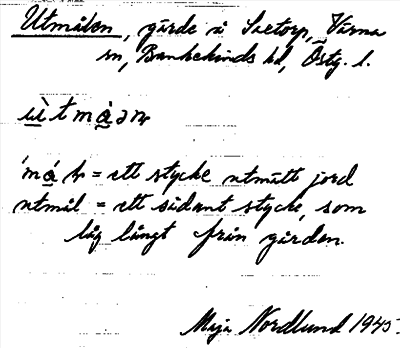 Utmålen, gärde å Saetorp, Värna
sn, Bankekinds hd, Östg. l.
ù̀tmàən
mål = ett stycke utmätt jord
utmål = ett sådant stycke, som
låg långt från gården.
Maja Nordlund 1945.